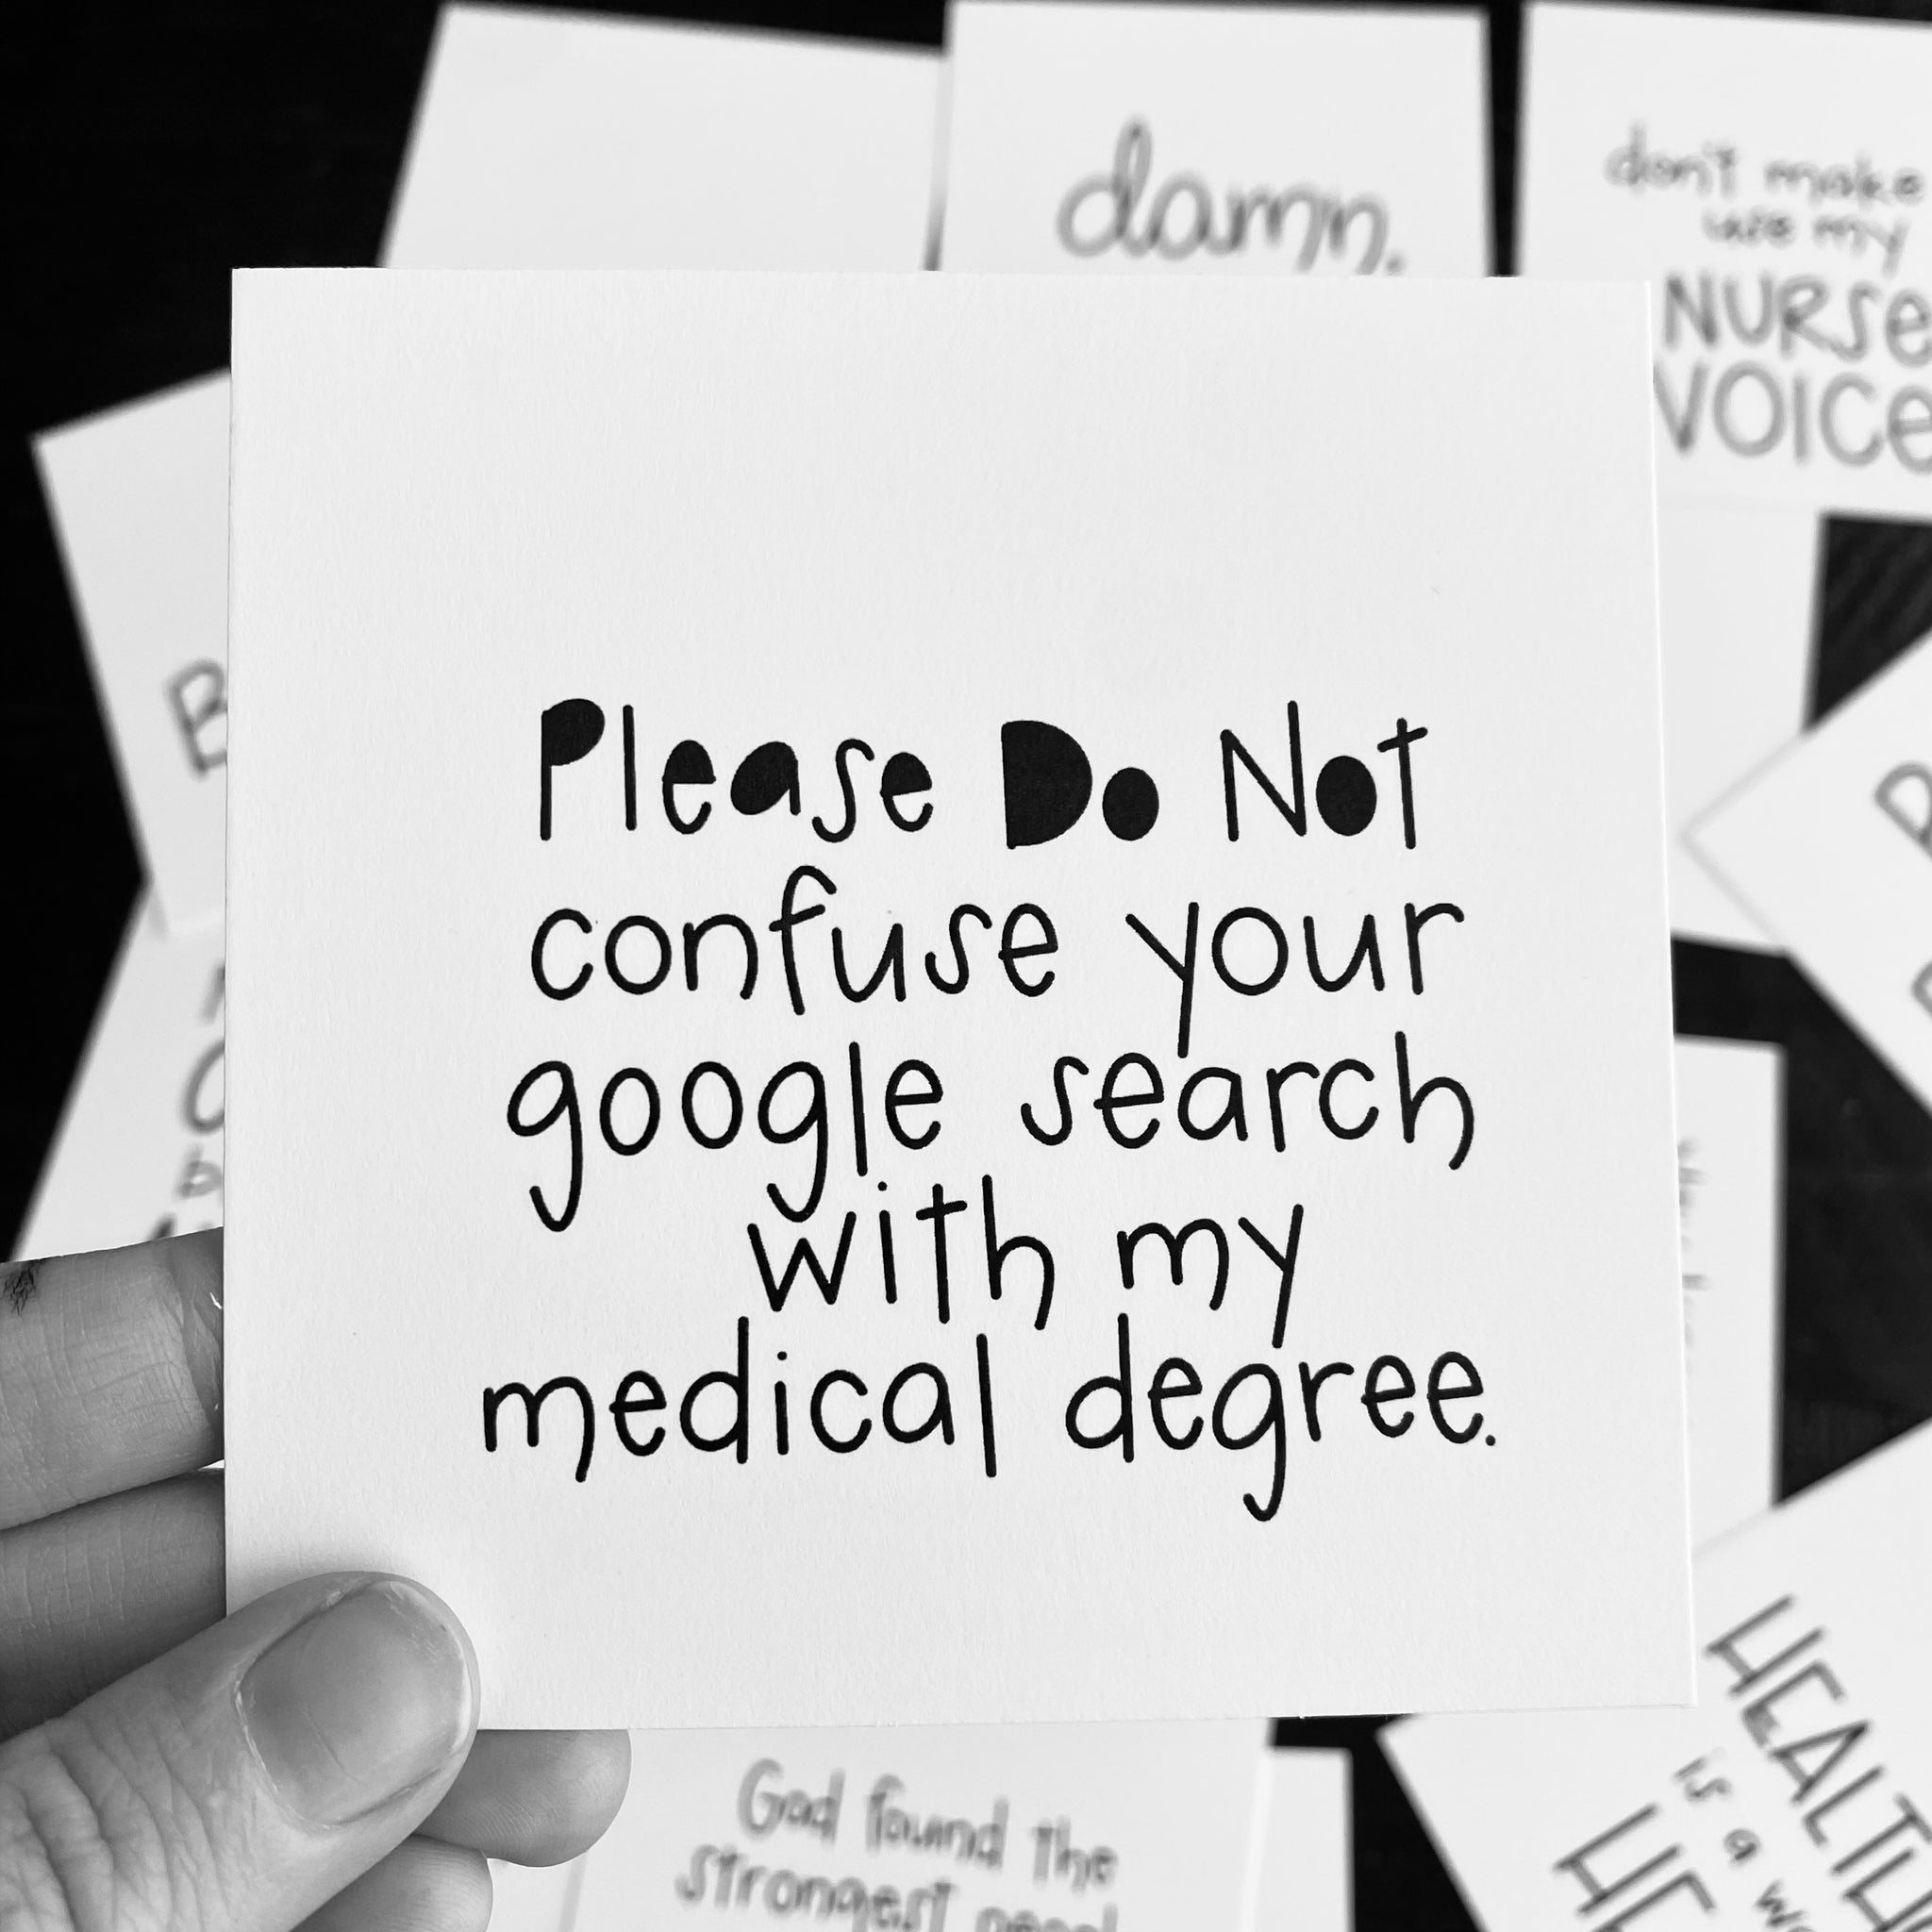 damn.
don't make
use my
NURSE
VOICE
Please Do Not
confuse your
google search
with my
medical degree.
God found the
strongest
HEALTH
is a